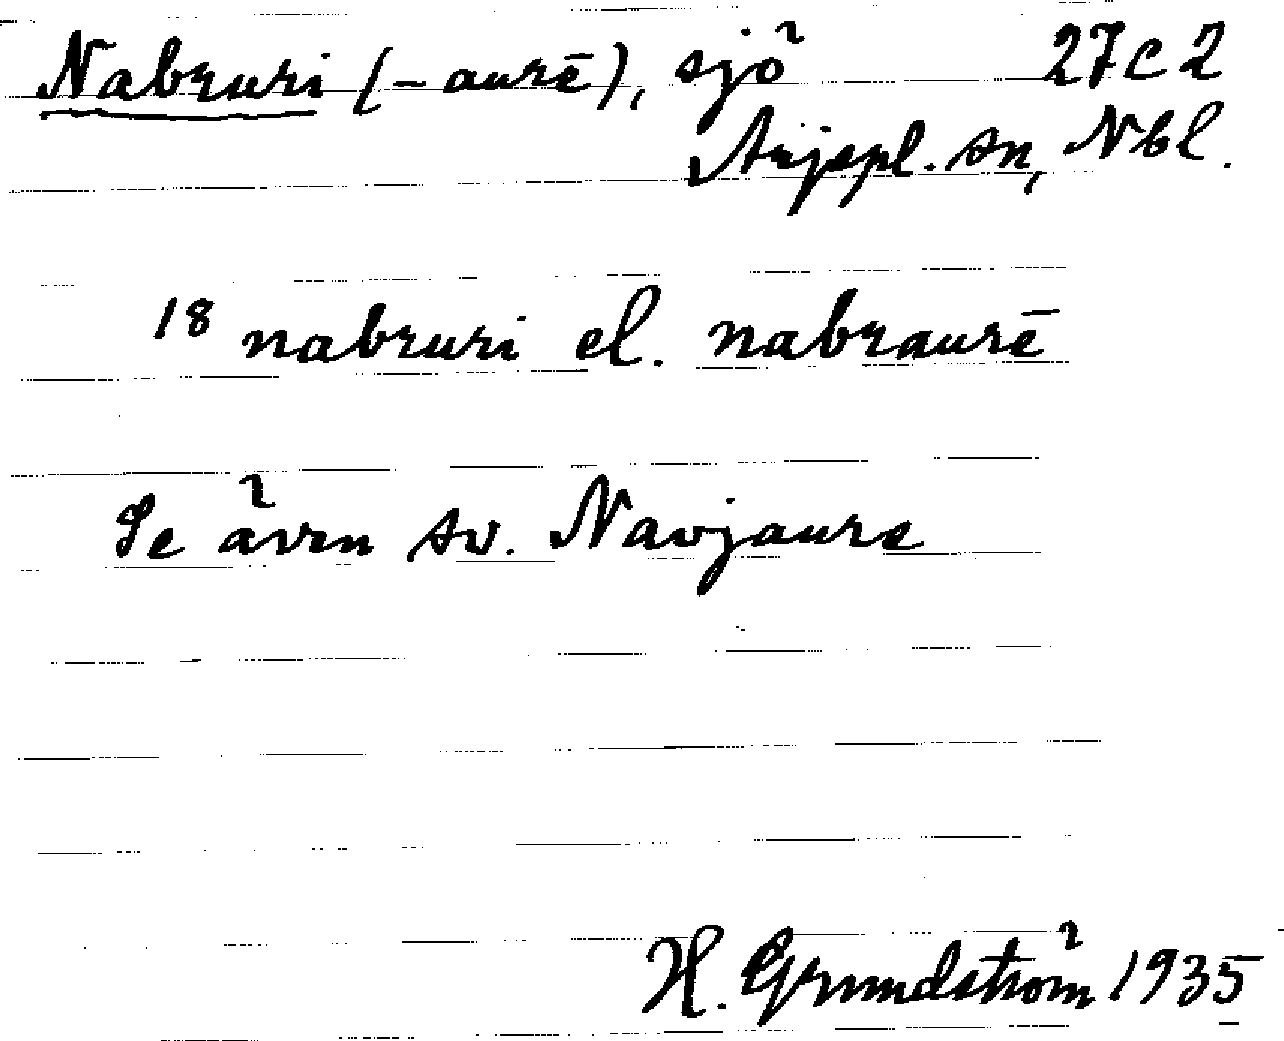 Nabruri (-aurē), sjö 27c2
Arjepl. sn, Nbl.
18 nabruri el. nabraurē
Se även sv. Navjaure
H. Grundström 1935